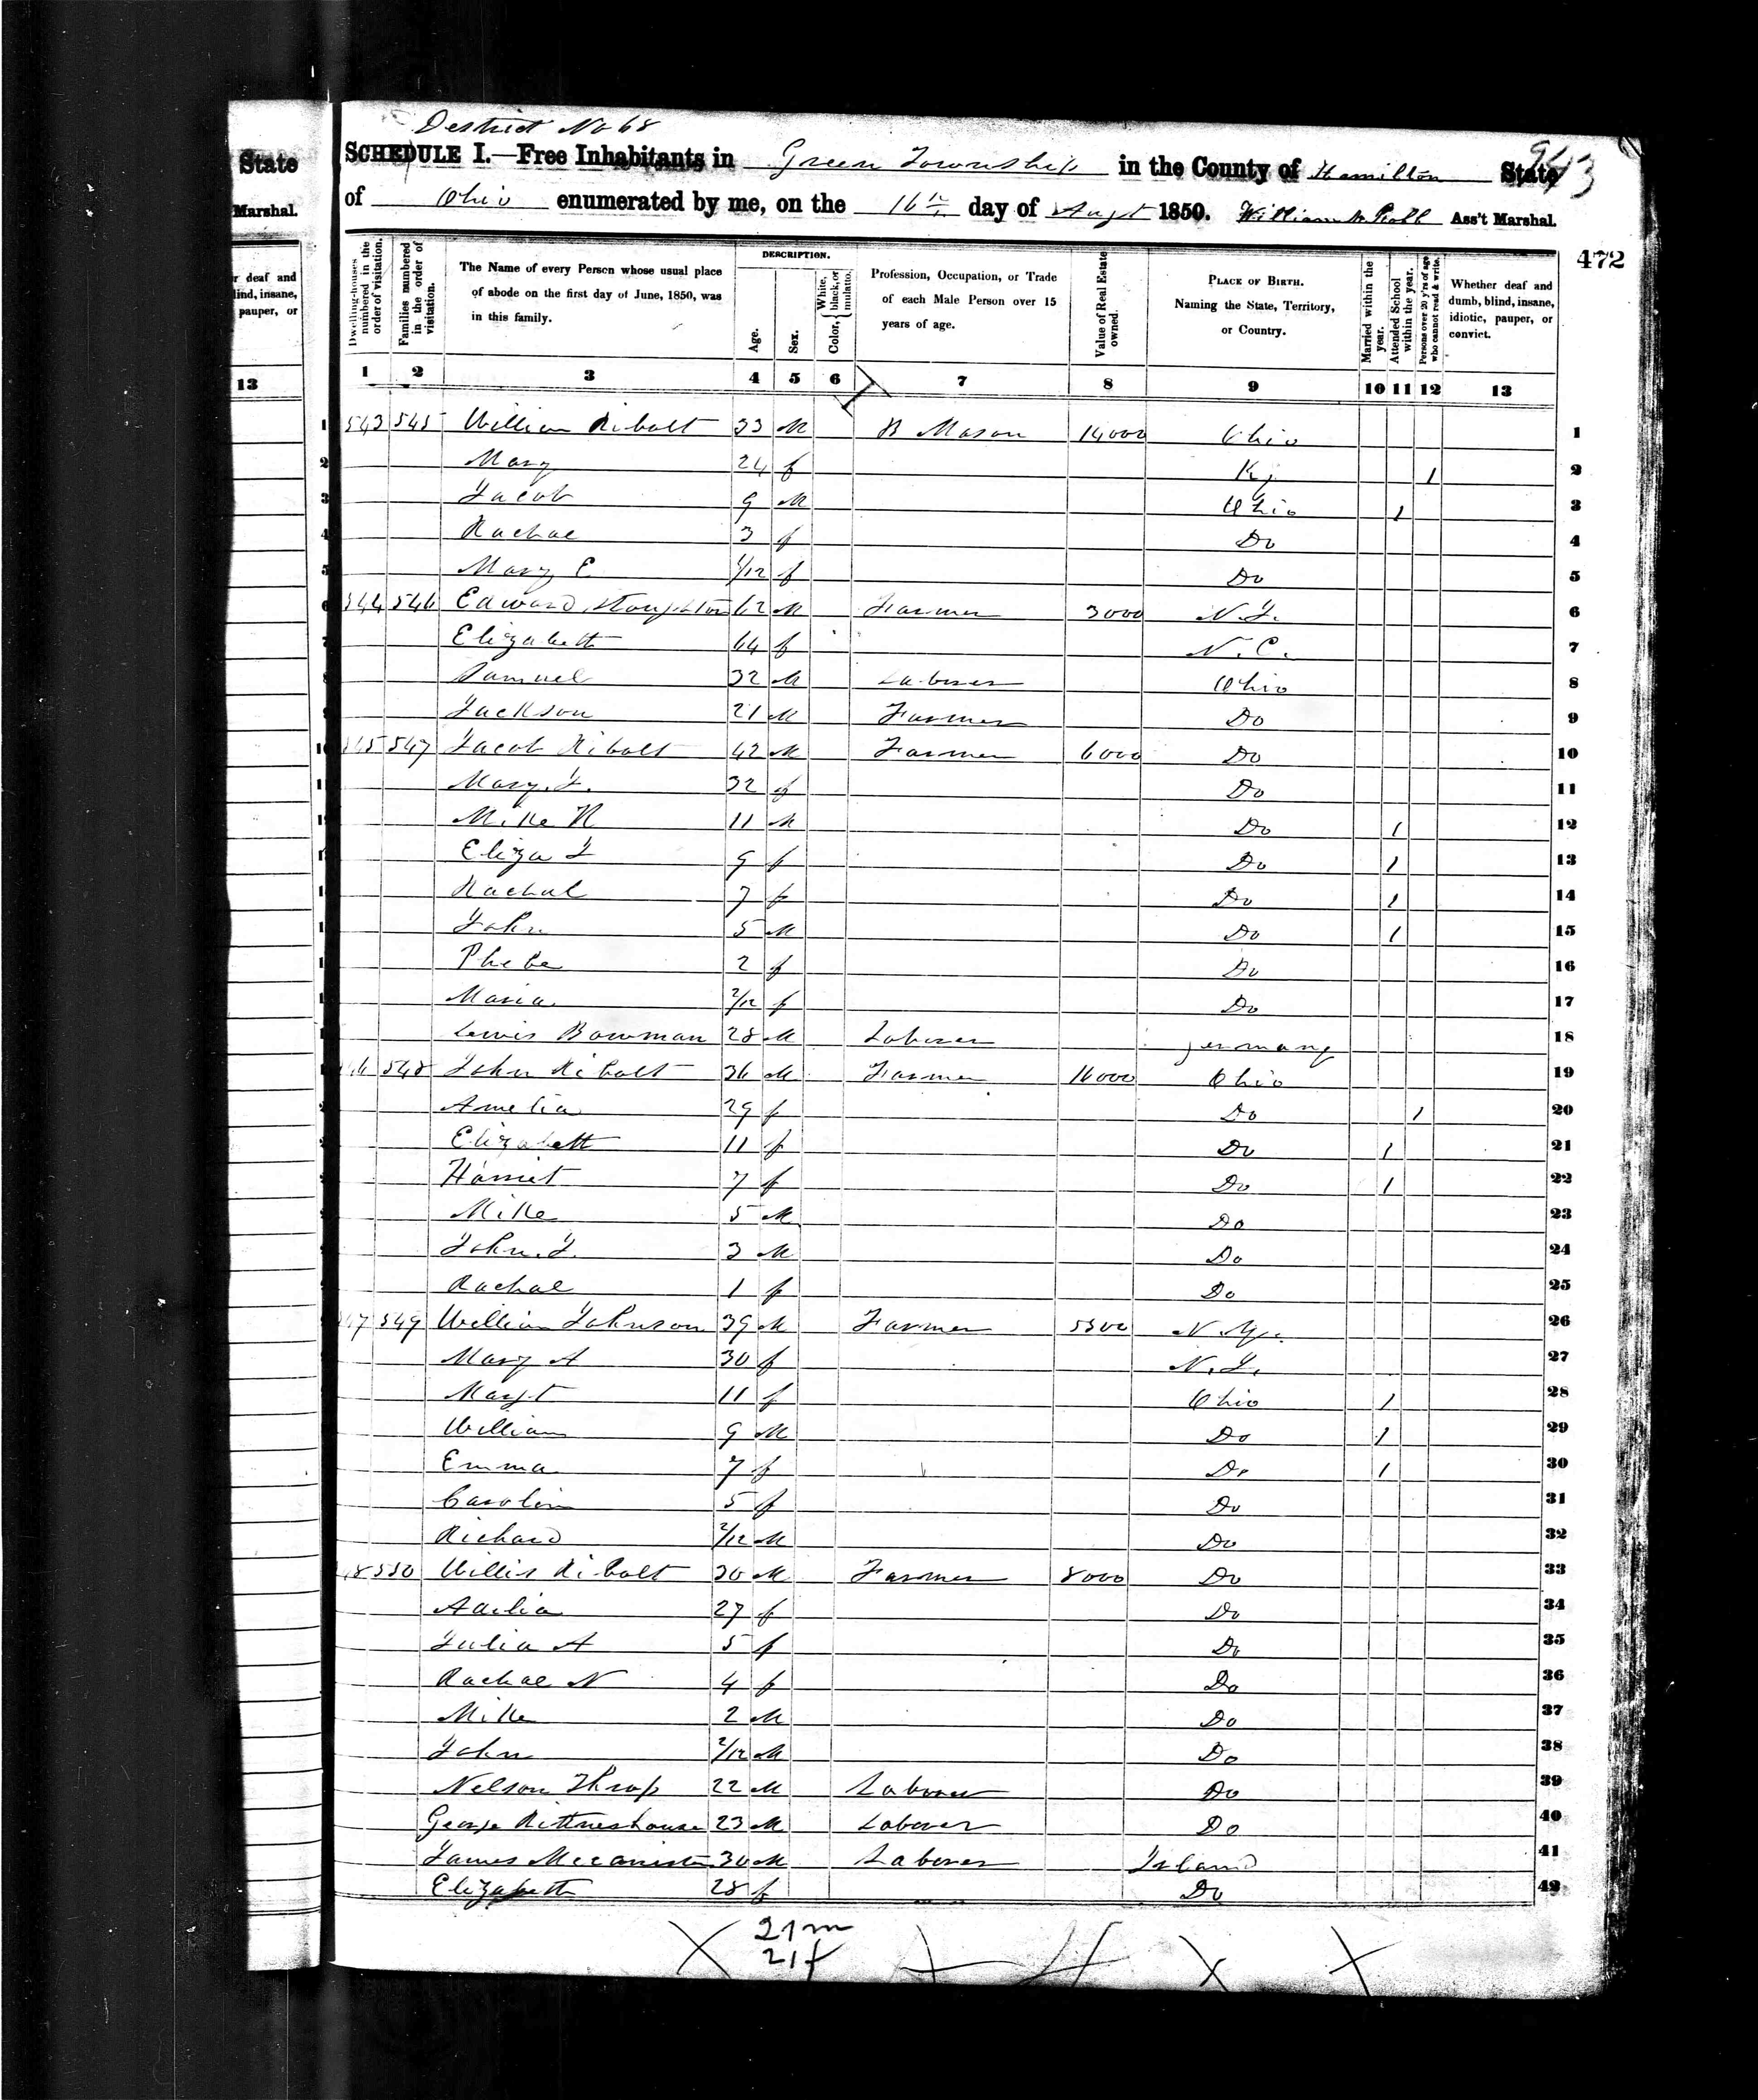 District No 68
943
State
SCHEDULE I.—Free Inhabitants in Green Township in the County of Hamilton State
Marshal.
of Ohio enumerated by me, on the 16th day of Augt 1850. William Ass't Marshal.
472
r deaf and
lind, insane,
pauper, or
13
Dwelling-houses numbered in the order of visitation.
Families numbered in the order of visitation.
The Name of every Person whose usual place of abode on the first day of June, 1850, was in this family.
DESCRIPTION.
Age.
Sex.
Color, { White, black, or mulatto.
Profession, Occupation, or Trade of each Male Person over 15 years of age.
Value of Real Estate owned.
PLACE OF BIRTH. Naming the State, Territory, or Country.
Married within the year.
Attended School within the year.
Persons over 20 y'rs of age who cannot read & write.
Whether deaf and dumb, blind, insane, idiotic, pauper, or convict.
1 2 3 4 5 6 7 8 9 10 11 12 13
1 543 545 William Ribolt 33 M B Mason 14000 Ohio 1
2 Mary 24 f Ky 1 2
3 Jacob 9 M Ohio 1 3
4 Rachae 3 f Do 4
5 Mary E 1/12 f Do 5
6 544 546 Edward Stoughton 62 M Farmer 3000 N.J. 6
7 Elizabeth 64 f N.C. 7
8 Samuel 32 M Laborer Ohio 8
9 Jackson 21 M Farmer Do 9
10 545 547 Jacob Ribolt 42 M Farmer 6000 Do 10
Mary. J. 32 f Do 11
Mike R 11 M Do 1 12
Eliza J 9 f Do 1 13
Rachal 7 f Do 1 14
John 5 M Do 1 15
Phebe 2 f Do 16
Maria 2/12 f Do 17
Lewis Bowman 28 M Laborer Jermany 18
46 548 John Ribolt 36 M Farmer 16000 Ohio 19
Amelia 29 f Do 1 20
Elizabeth 11 f Do 1 21
Harriet 7 f Do 1 22
Mike 5 M Do 23
John. J. 3 M Do 24
Rachae 1 f Do 25
47 549 William Johnson 39 M Farmer 5500 N.Y. 26
Mary A 30 f N.J. 27
Margt 11 f Ohio 1 28
William 9 M Do 1 29
Emma 7 f Do 1 30
Carolin 5 f Do 31
Richard 2/12 M Do 32
48 550 Willis Ribolt 30 M Farmer 8000 Do 33
Adelia 27 f Do 34
Julia A 5 f Do 35
Rachae N 4 f Do 36
Mike 2 M Do 37
John 2/12 M Do 38
Nelson Throp 22 M Laborer Do 39
George Rittneshouse 23 M Laborer Do 40
James 30 M Laborer Irland 41
Elizabeth 28 f Do 42
21 m
21 f